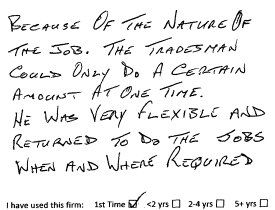 BECAUSE OF THE NATURE OF
THE JOB. THE TRADESMAN
COULD ONLY DO A CERTAIN
AMOUNT AT ONE TIME.
HE WAS VERY FLEXIBLE AND
RETURNED TO DO THE JOBS
WHEN AND WHERE REQUIRED
I have used this firm: 1st Time ☑ <2 yrs ☐ 2-4 yrs ☐ 5+ yrs ☐